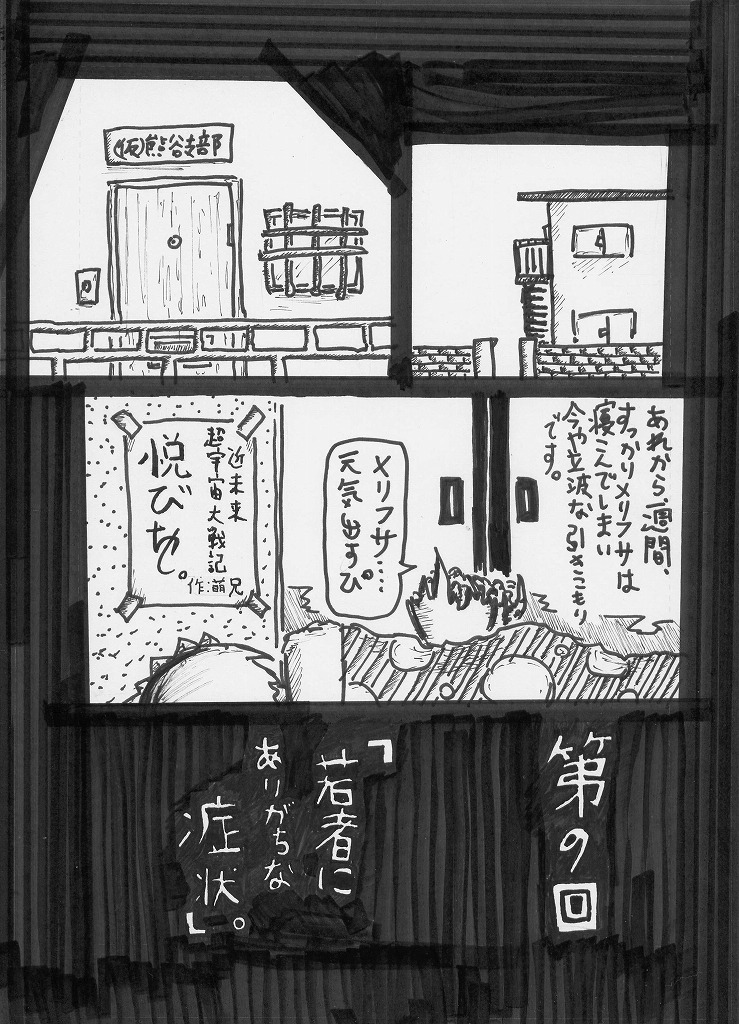 (仮)熊谷支部
あれから一週間、
すっかりメリフサは
寝こんでしまい
今や立波な引きこもり
です。
メリフサ…
元気出すぴ。
近未来
超宇宙大戦記
悦びを。
作:萌兄
第9回
「若者に
ありがちな
症状」。